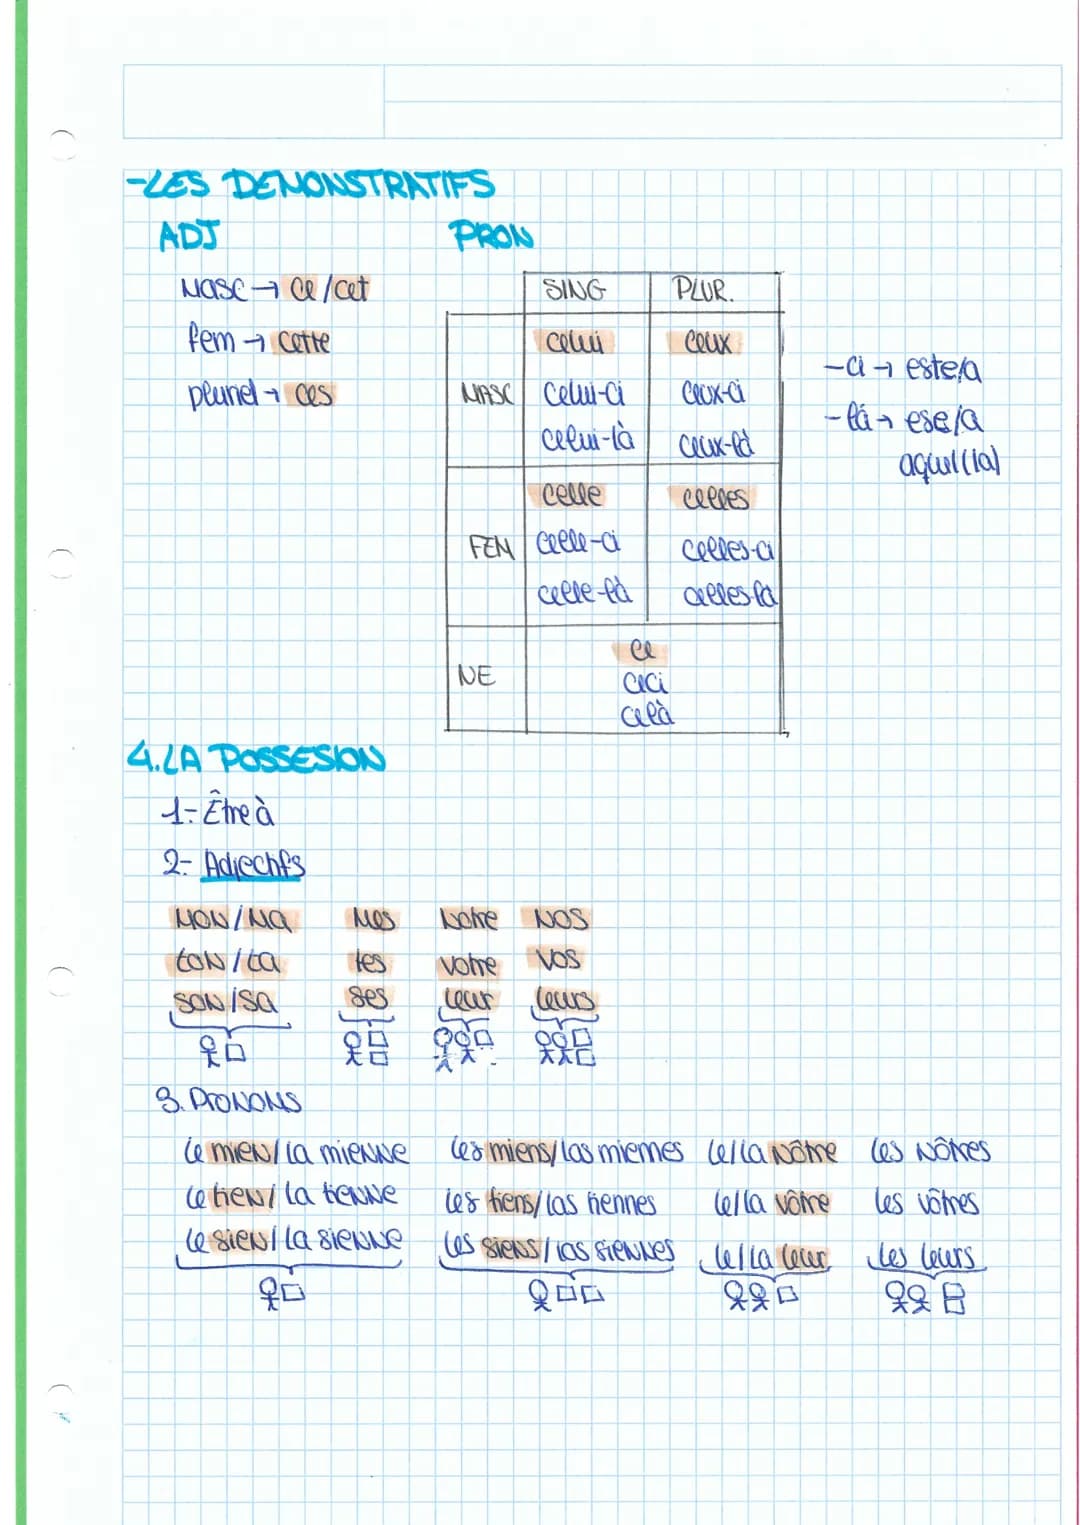 -LES DEMONSTRATIFS
ADJ PRON
MASC → ce/cet
fem → cette
pluriel → ces
SING PLUR.
MASC
celui ceux
celui-ci ceux-ci
celui-là ceux-là
FEM
celle celles
celle-ci celles-ci
celle-là celles-la
NE
ce
ceci
celà
-ci → este/a
-lá → ese/a
aquel(la)
4.LA POSSESION
1- Être à
2- Adjectifs
MON/MA Mes Notre NOS
ton/ta tes votre vos
SON/SA ses leur leurs
3. Pronons
le mien/la mienne les miens/las miennes le/la Nôtre les Nôtres
le tien/la tienne les tiens/las tiennes le/la vôtre les vôtres
le sien/la sienne les siens/las siennes le/la leur les leurs